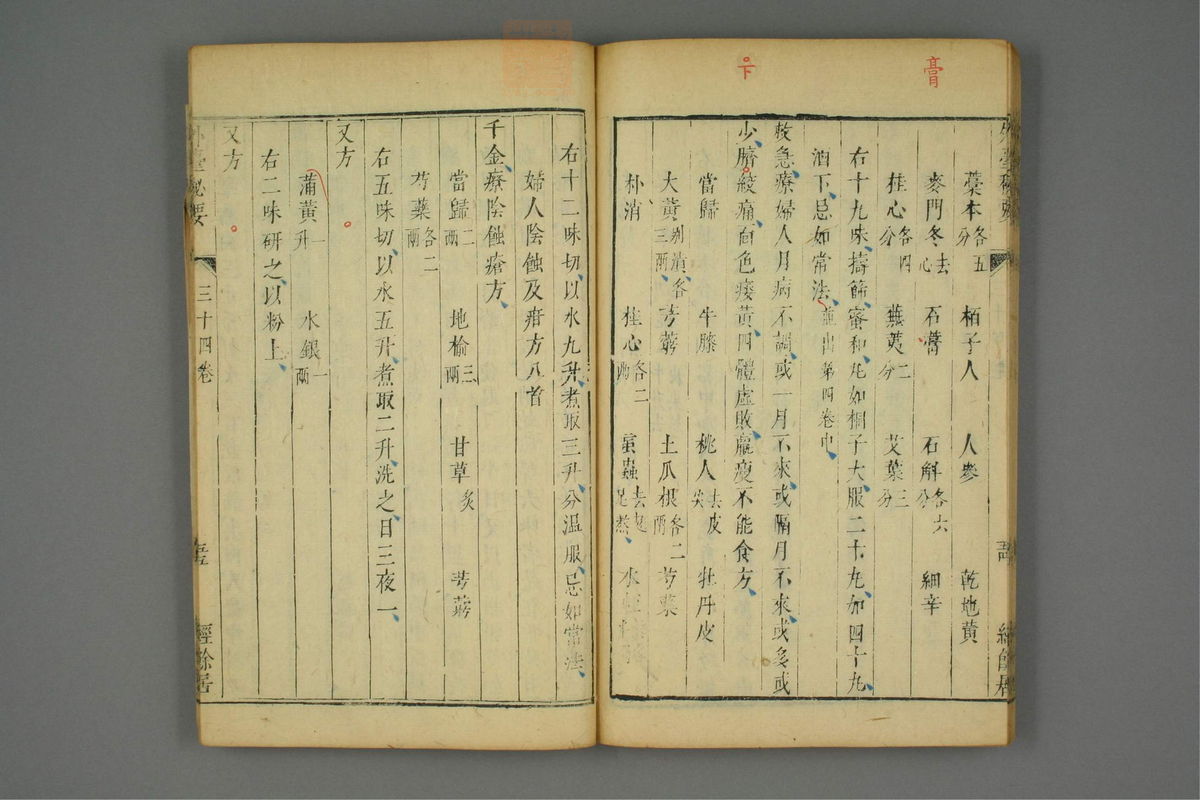 膏
下
藁本各五分　栢子人　人參　乾地黃
麥門冬去心　石膏　石斛各六分　細辛
桂心各四分　蕪荑二分　艾葉三分
右十九味擣篩蜜和丸如桐子大服二十丸加四十丸
酒下忌如常法並出第四卷中
救急療婦人月病不調或一月不來或隔月不來或多或
少臍絞痛面色痿黃四體虛敗羸瘦不能食方
當歸　牛膝　桃人去皮尖　牡丹皮
大黃別漬各三兩　芎藭　土瓜根各二兩　芍藥
朴消　桂心各二兩　䖟蟲去翅足熬　水蛭
右十二味切以水九升煮取三升分溫服忌如常法
婦人陰蝕及疳方八首
千金療陰蝕瘡方
當歸二兩　地榆三兩　甘草炙　芎藭
芍藥各二兩
右五味切以水五升煮取二升洗之日三夜一
又方
蒲黃一升　水銀一兩
右二味研之以粉上
又方
外臺秘要　三十四卷　經餘居